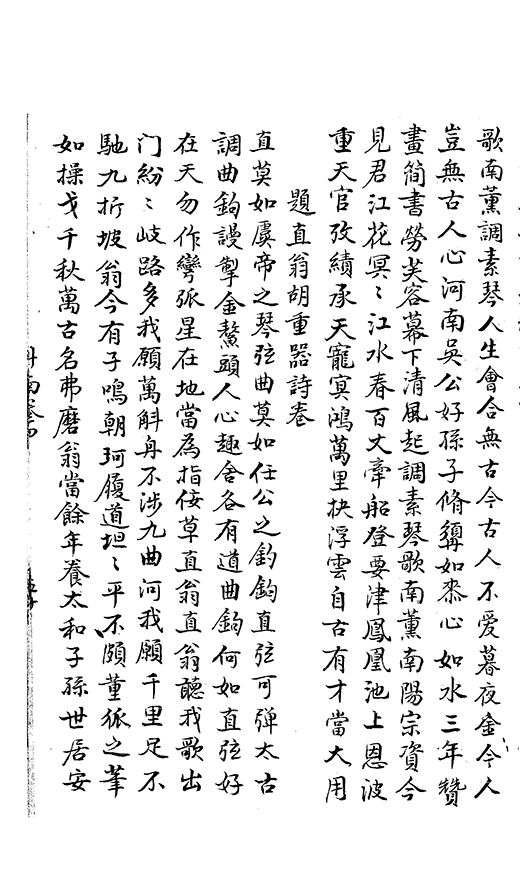 歌南薰調素琴人生會合無古今古人不愛暮夜金今人
豈無古人心河南吳公好孫子脩鞶如黍心如水三年贊
畫簡書勞芙容幕下清風起調素琴歌南薰南陽宗資今
見君江花冥〻江水春百丈牽船登要津鳳凰池上恩波
重天官攷績承天寵冥鴻萬里抉浮雲自古有才當大用
題直翁胡重器詩卷
直莫如虞帝之琴弦曲莫如任公之釣鈎直弦可彈太古
調曲鈎謾掣金鰲頭人心趣舍各有道曲鈎何如直弦好
在天勿作彎弧星在地當為指佞草直翁直翁聽我歌出
門紛〻岐路多我願萬斛舟不涉九曲河我願千里足不
馳九折坡翁今有子鳴朝珂履道坦〻平不頗董狐之筆
如操戈千秋萬古名弗磨翁當餘年養太和子孫世居安